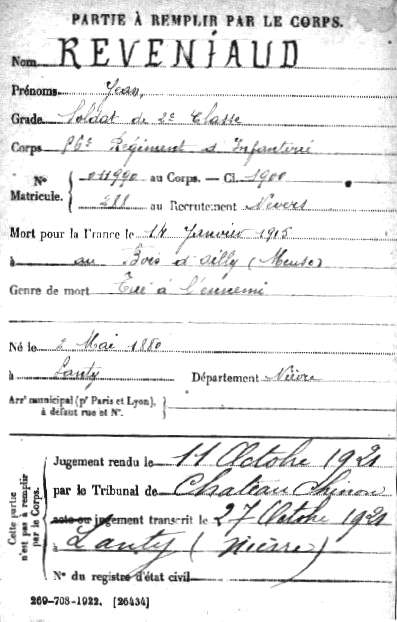 PARTIE À REMPLIR PAR LE CORPS.
Nom REVENIAUD
Prénoms Jean,
Grade Soldat de 2e Classe
Corps Régiment d'Infanterie
No Matricule. 011990 au Corps. — Cl. 1900
288 au Recrutement Nevers
Mort pour la France le 14 Janvier 1915
à au Bois d'Ailly (Meuse)
Genre de mort Tué à l'ennemi
Né le 2 Mai 1880
à Lanty Département Nièvre
Arrt municipal (pr Paris et Lyon), à défaut rue et No.
Cette partie n'est pas à remplir par le Corps.
Jugement rendu le 11 Octobre 1921
par le Tribunal de Chateau Chinon
acte ou jugement transcrit le 27 Octobre 1921
à Lanty (Nièvre)
No du registre d'état civil
269-708-1922. [26434]